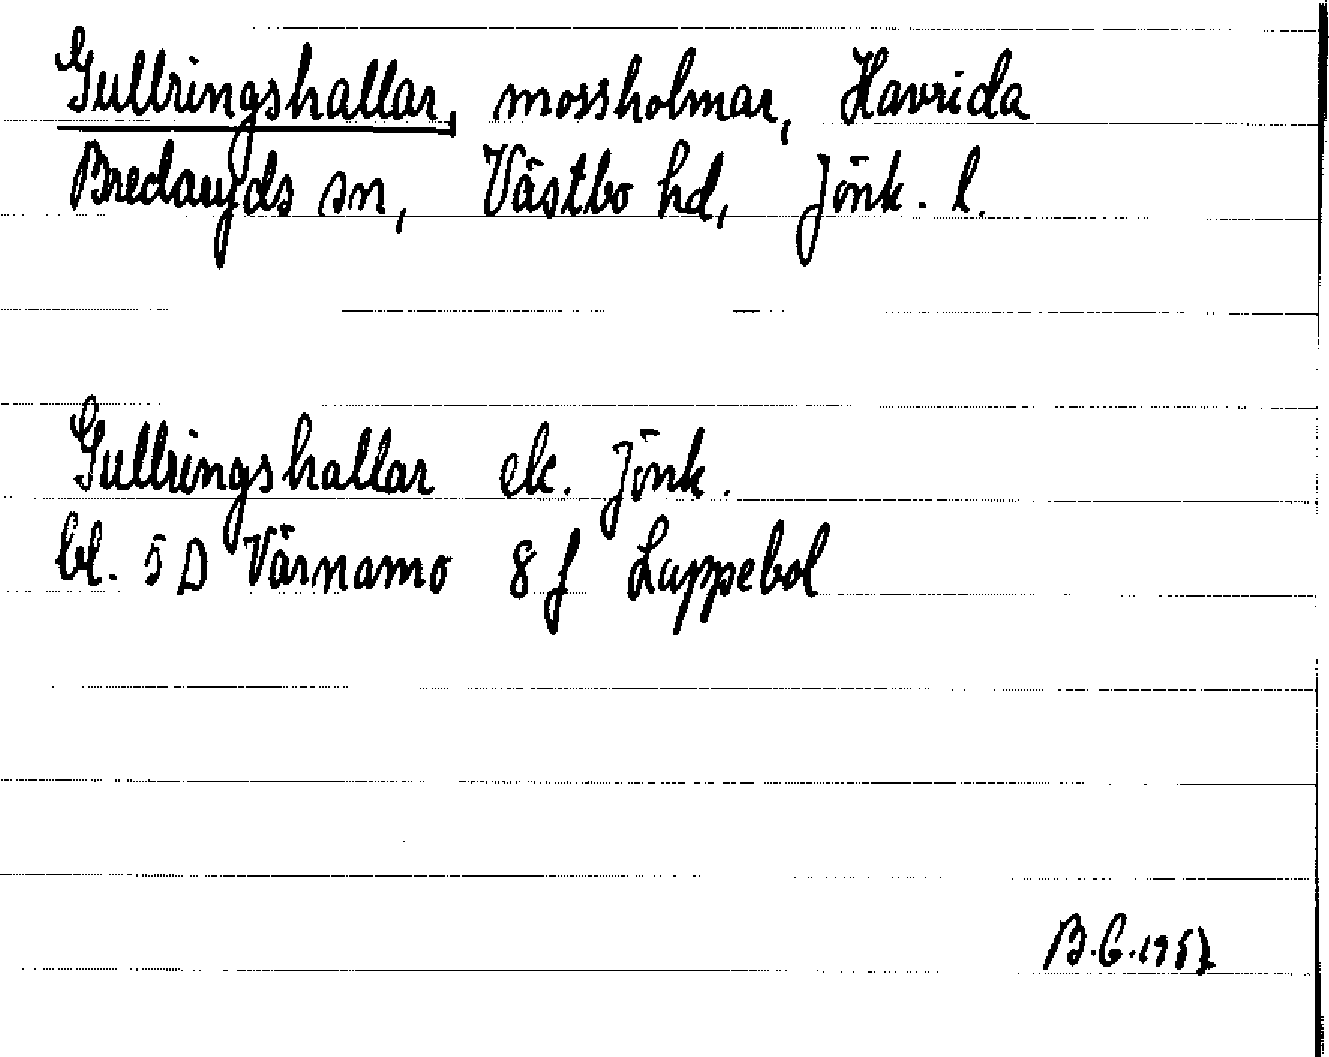 Gullringshallar, mossholmar, Havrida
Bredaryds sn, Västbo hd, Jönk. l.
Gullringshallar ek. Jönk.
bl. 5 D Värnamo 8 f Lappebol
B.G.1957